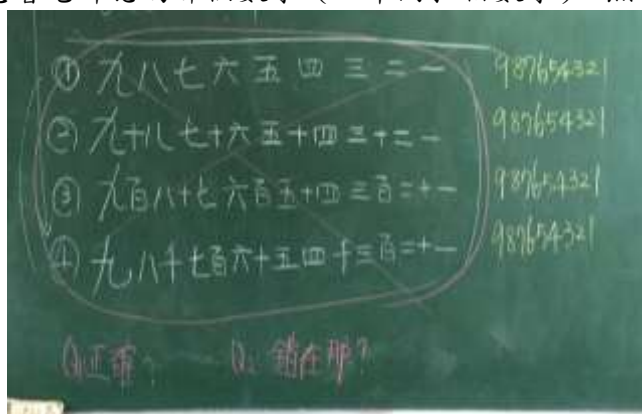 ① 九八七六五四三二一 987654321
② 九十八七十六五十四三十二一 987654321
③ 九百八十七六百五十四三百二十一 987654321
④ 九八千七百六十五四千三百二十一 987654321
Q1正確? Q2 錯在那?